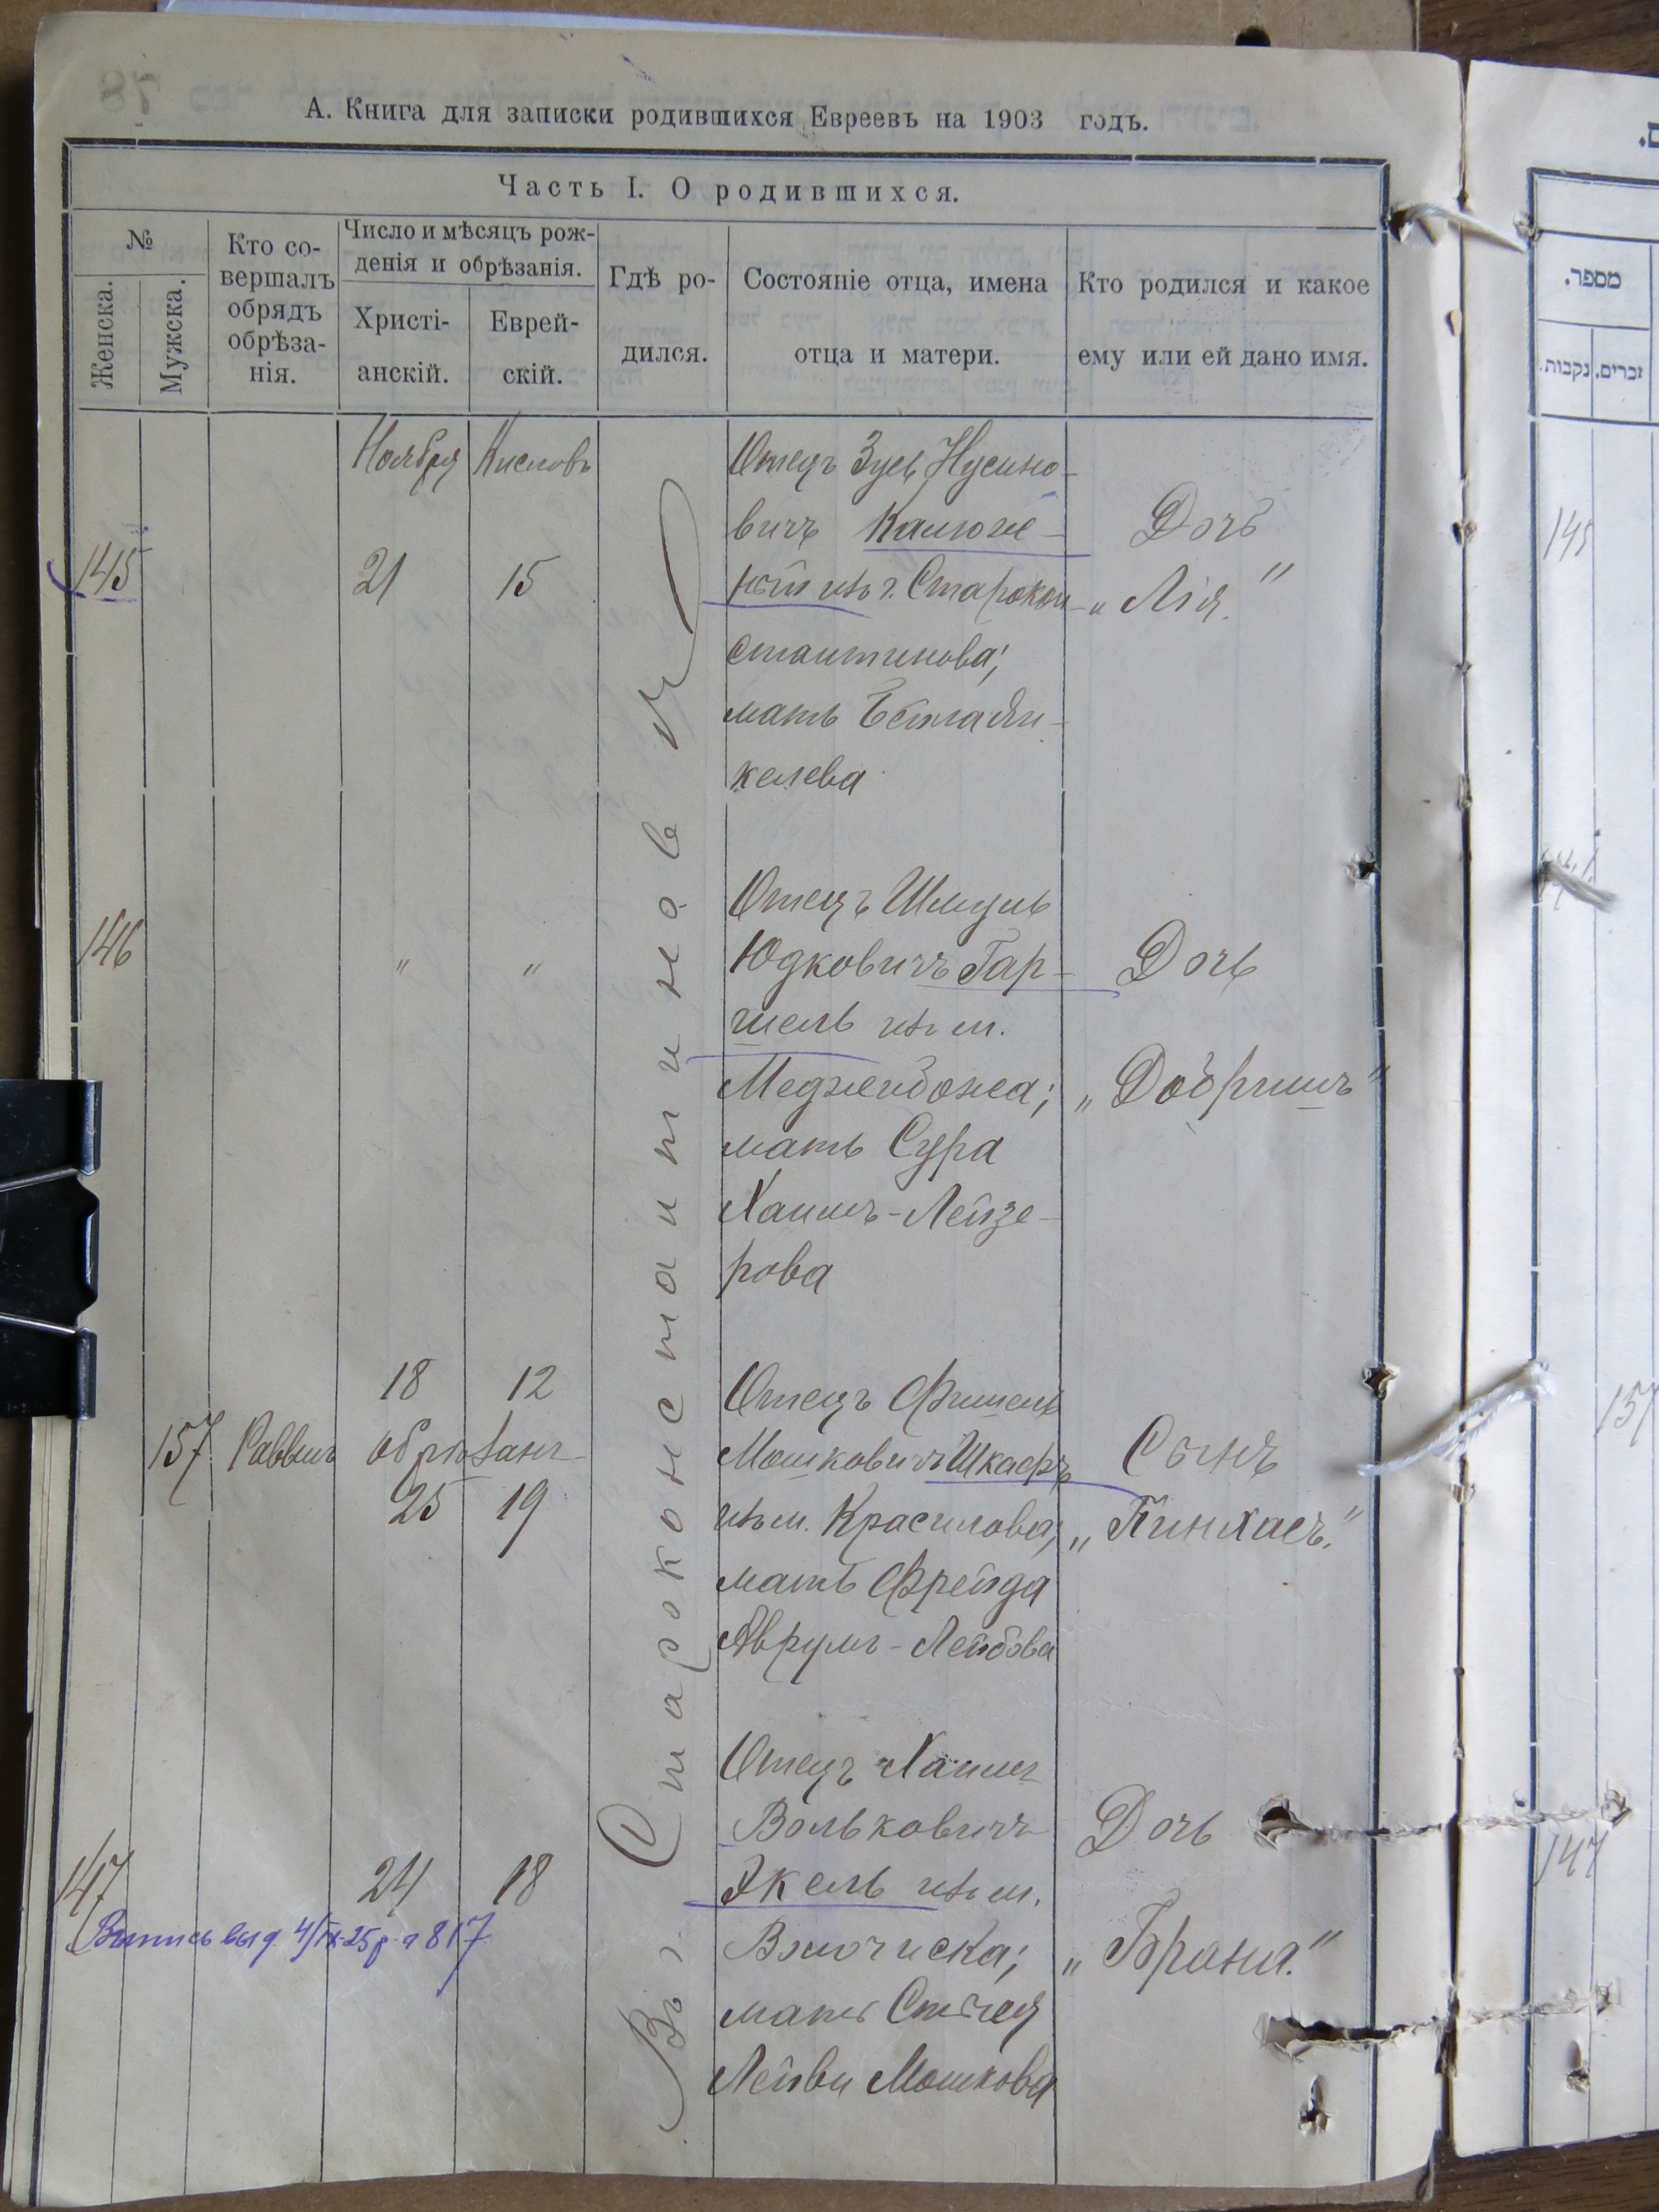 78
А. Книга для записки родившихся Евреевъ на 1903 годъ.
Часть I. О родившихся.
№
Женска.
Мужска.
Кто со-
вершалъ
обрядъ
обрѣза-
нія.
Число и мѣсяцъ рож-
денія и обрѣзанія.
Христі-
анскій.
Еврей-
скій.
Гдѣ ро-
дился.
Состояніе отца, имена
отца и матери.
Кто родился и какое
ему или ей дано имя.
Въ г. Староконстантиновѣ
145
Ноября
21
Кислевъ
15
Отецъ Зусь Нусино-
вичъ Калюж-
ный изъ г. Старокон-
стантинова;
мать Бейла
келева
Дочь
„Лія."
146
"
"
Отецъ Шмуль
Юдковичъ Гар-
шель изъ м.
Меджибожа;
мать Сура
Хаимъ-Лейзе-
рова
Дочь
„Добришъ"
157
Раввинъ
18
12
обрѣзанъ
25
19
Отецъ Фишель
Мошковичъ Шкафъ
изъ м. Красилова;
мать Фрейда
Аврумъ-Лейбова
Сынъ
„Пинхасъ."
147
24
18
Отецъ Хаимъ
Вольковичъ
Экель изъ м.
Волочиска;
мать
Мошкова
Дочь
„Броня."
Выпись выд. 4/IX-25 р. 817
מספר.
נקבות.
זכרים.
145
157
147